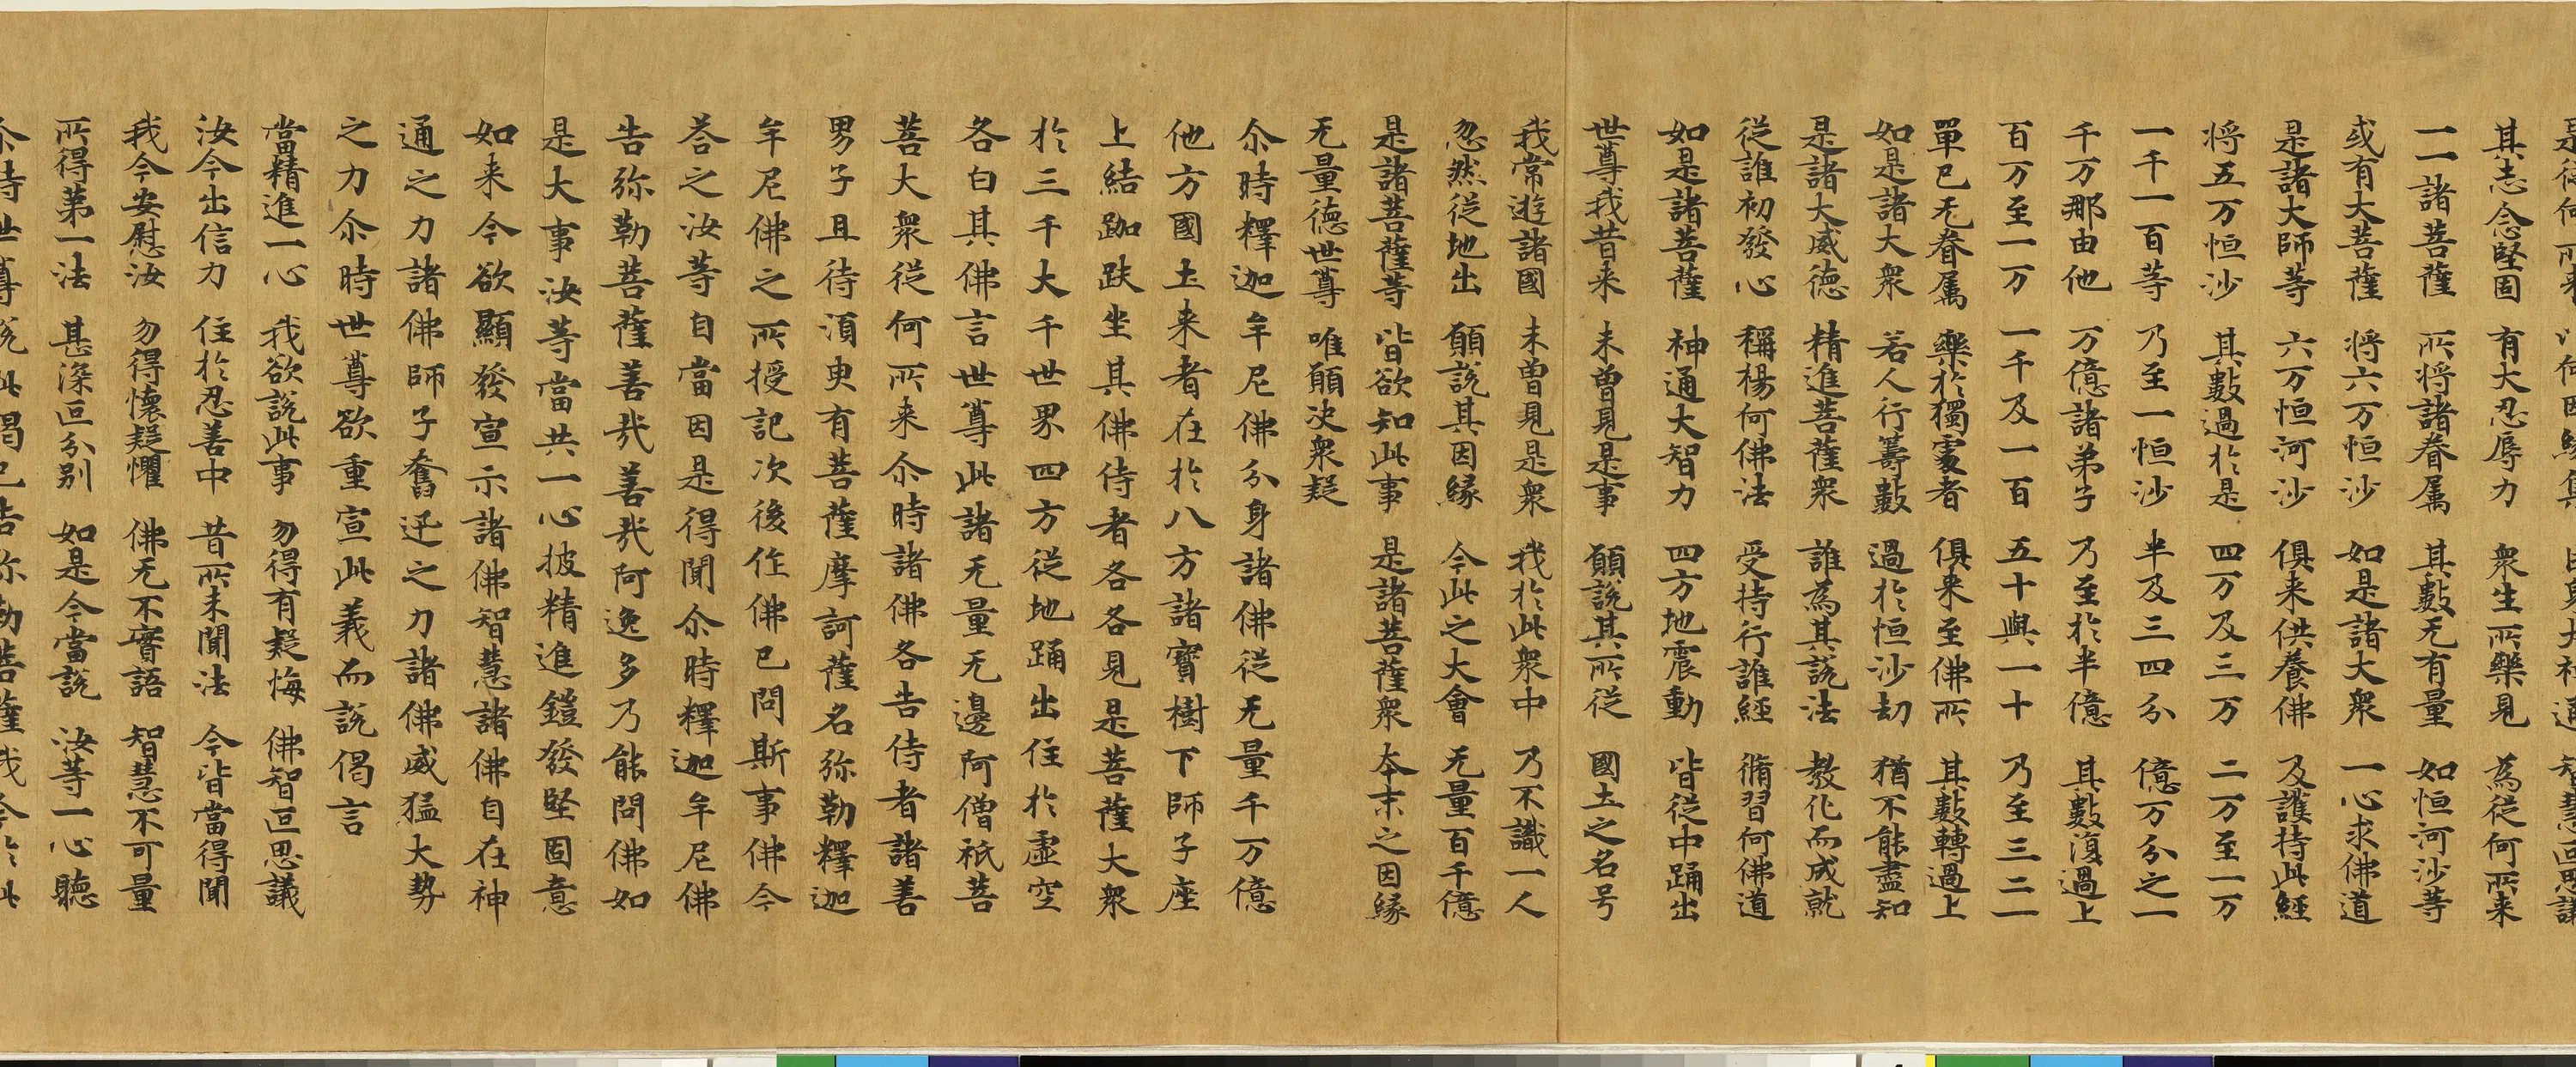 是從何所来 以何因縁集 巨身大神通 智慧叵思議
其志念堅固 有大忍辱力 衆生所樂見 為從何所来
一一諸菩薩 所将諸眷属 其數无有量 如恒河沙等
或有大菩薩 将六万恒沙 如是諸大衆 一心求佛道
是諸大師等 六万恒河沙 俱来供養佛 及護持此經
将五万恒沙 其數過於是 四万及三万 二万至一万
一千一百等 乃至一恒沙 半及三四分 億万分之一
千万那由他 万億諸弟子 乃至於半億 其數復過上
百万至一万 一千及一百 五十與一十 乃至三二一
單已无眷属 樂於獨處者 俱来至佛所 其數轉過上
如是諸大衆 若人行籌數 過於恒沙劫 猶不能盡知
是諸大威德 精進菩薩衆 誰為其說法 教化而成就
從誰初發心 稱楊何佛法 受持行誰經 脩習何佛道
如是諸菩薩 神通大智力 四方地震動 皆從中踊出
世尊我昔来 未曽見是事 願說其所從 國土之名号
我常遊諸國 未曽見是衆 我於此衆中 乃不識一人
忽然從地出 願說其因縁 今此之大會 无量百千億
是諸菩薩等 皆欲知此事 是諸菩薩衆 夲末之因縁
无量德世尊 唯願决衆疑
尒時釋迦牟尼佛分身諸佛從无量千万億
他方國土来者在於八方諸寳樹下師子座
上結跏趺坐其佛侍者各各見是菩薩大衆
於三千大千世界四方從地踊出住於虛空
各白其佛言世尊此諸无量无邊阿僧祇菩
菩大衆從何所来尒時諸佛各告侍者諸善
男子且待湏臾有菩薩摩訶薩名弥勒釋迦
牟尼佛之所授記次後作佛已問斯事佛今
荅之汝等自當因是得聞尒時釋迦牟尼佛
告弥勒菩薩善㢤善㢤阿逸多乃能問佛如
是大事汝等當共一心披精進鎧發堅固意
如来今欲顯發宣示諸佛智慧諸佛自在神
通之力諸佛師子奮迅之力諸佛威猛大勢
之力尒時世尊欲重宣此義而說偈言
當精進一心 我欲說此事 勿得有疑悔 佛智叵思議
汝今出信力 住於忍善中 昔所未聞法 今皆當得聞
我今安慰汝 勿得懷疑懼 佛无不實語 智慧不可量
所得第一法 甚深叵分別 如是今當說 汝等一心聽
尒時世尊說此偈已告弥勒菩薩我今於此